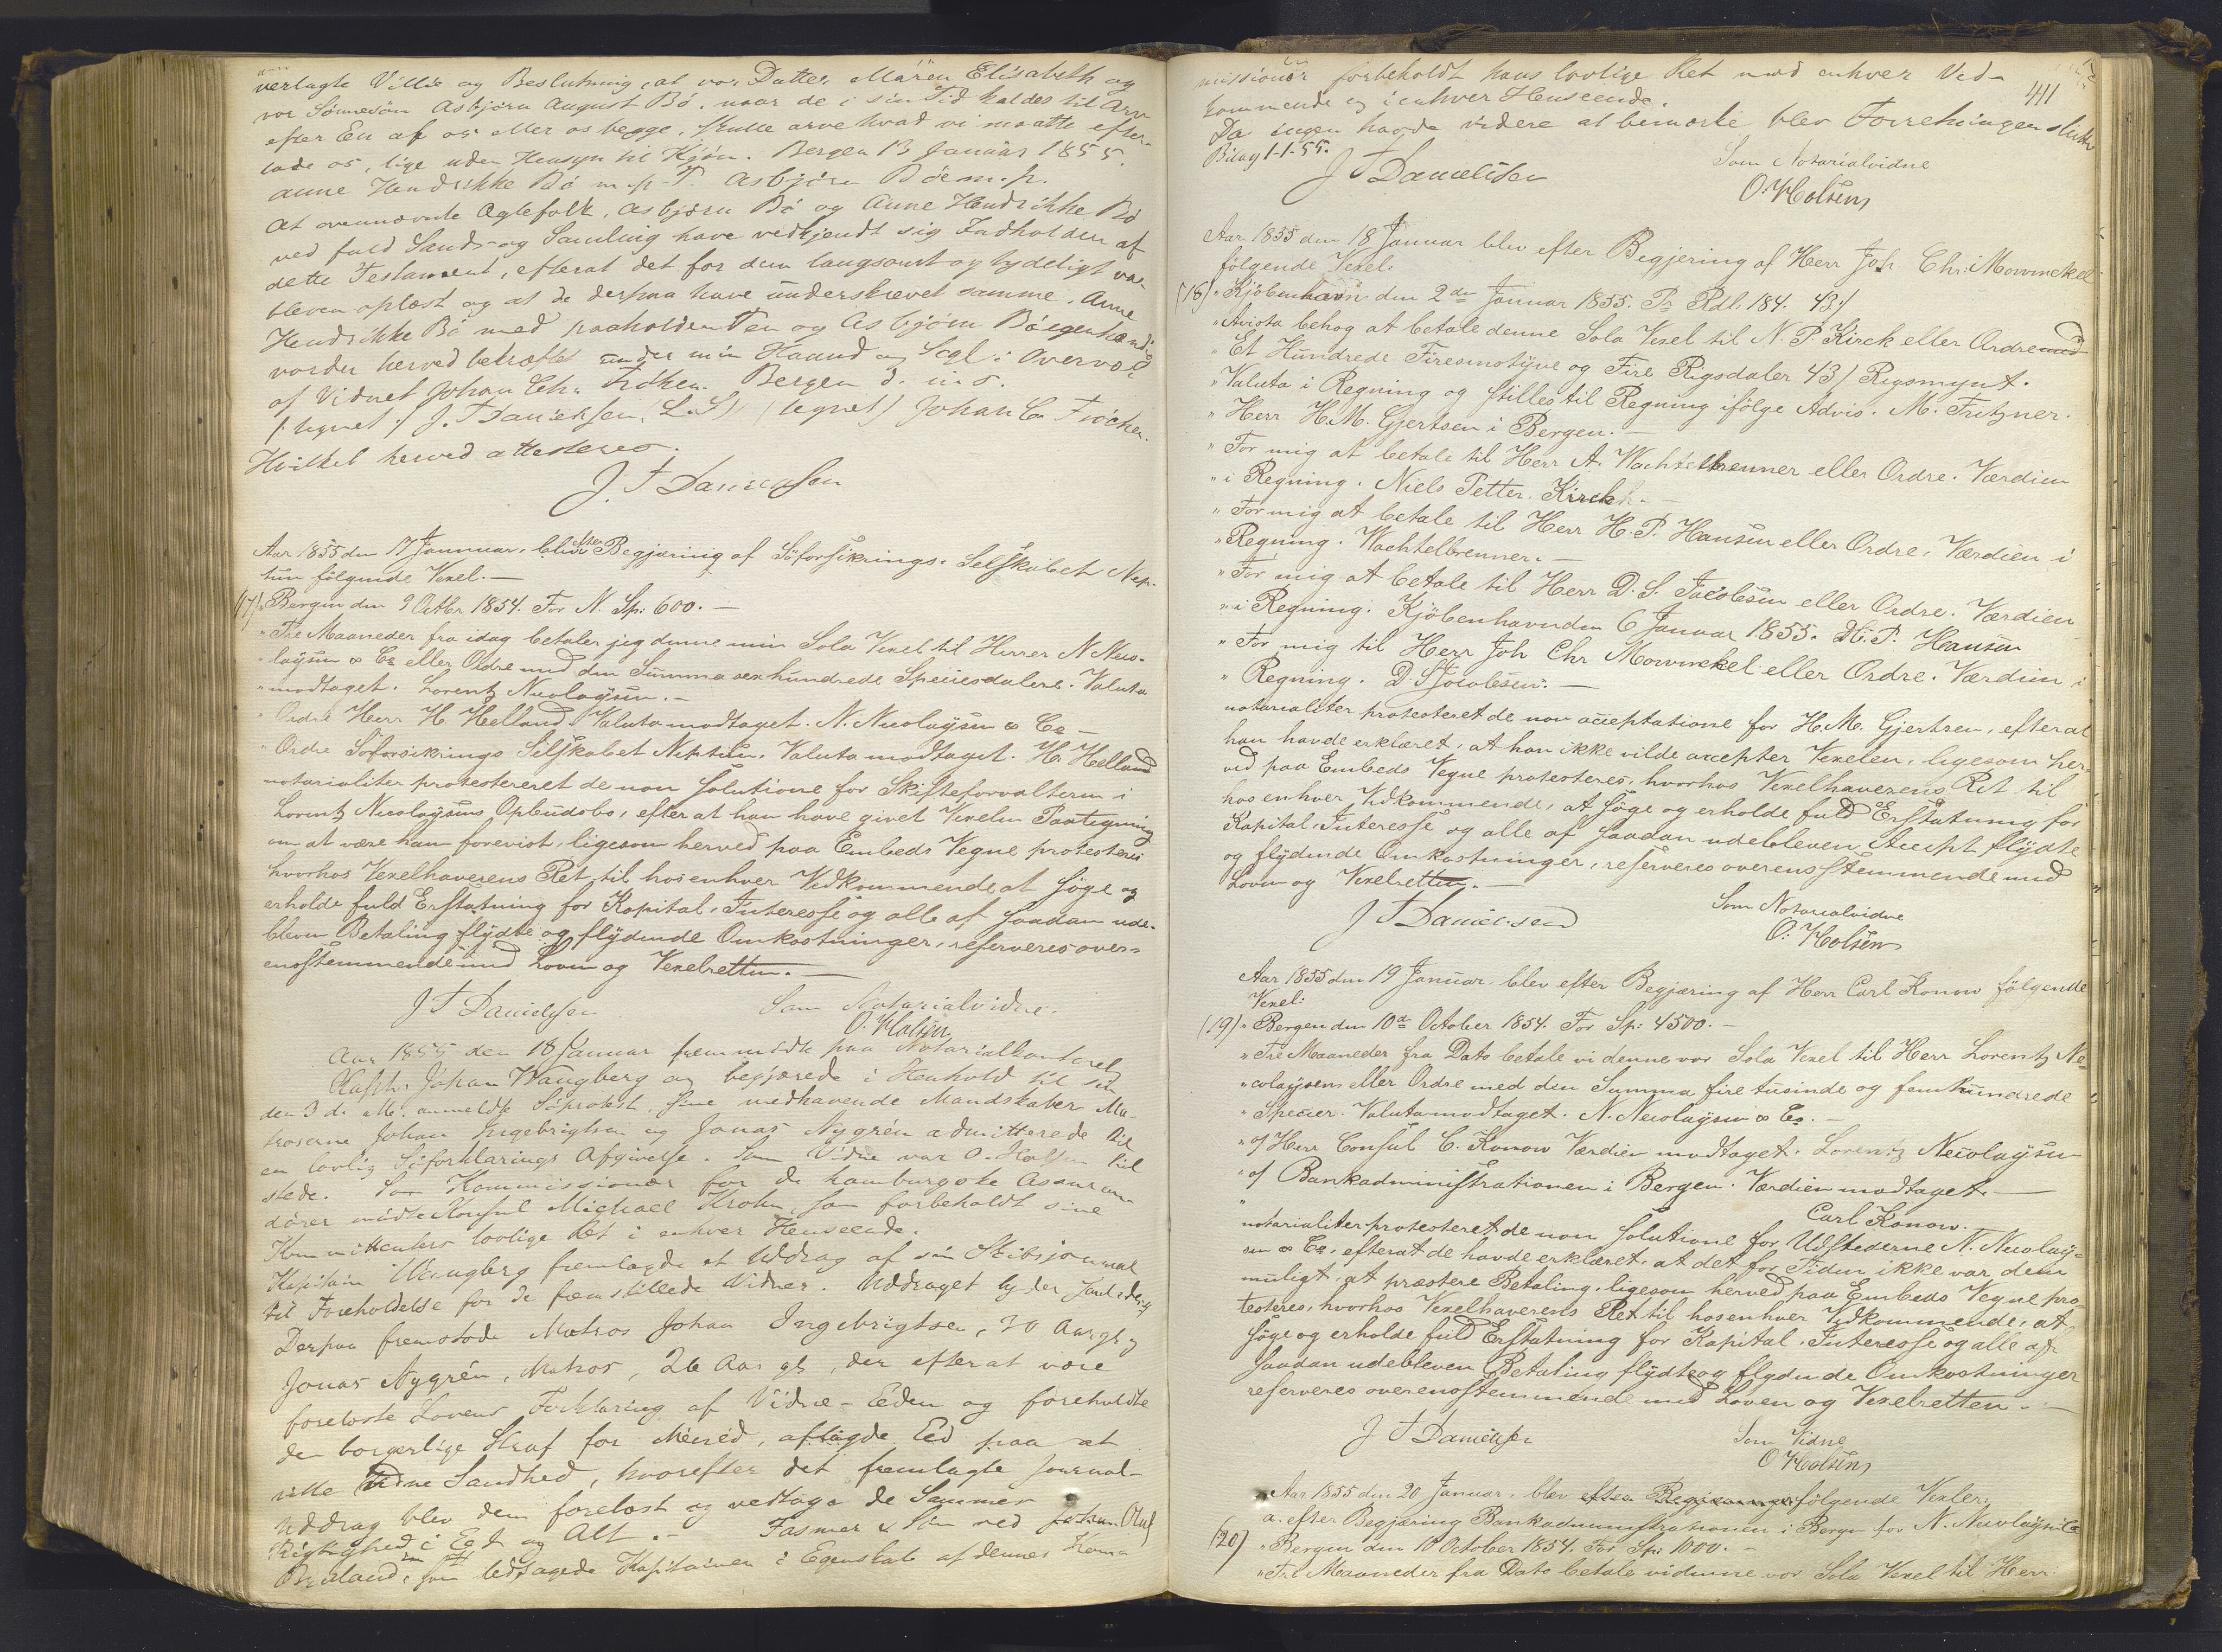 verlagte Villie og Beslutning, at vor Datter Maren Elisabeth og
vor Sønnesøn Asbjørn August Bö, naar de i sin Tid kaldes til Arv
efter En af os eller os begge, skulle arve hvad vi maatte efter-
lade os, lige uden Hensyn til Kjøn. Bergen 13 Januar 1855.
Anne Hendrikke Bö m. p. T. Asbjörn Böe m. p.
At ovennævnte Ægtefolk, Asbjörn Bö og Anne Hendrikke Bö
ved fuld Sands og Samling have vedkjendt sig Indholden af
dette Testament, efterat det for dem langsomt og tydeligt var
bleven oplæst og at de derpaa have underskrevet samme, Anne
Hendrikke Bö med paaholden Pen og Asbjörn Bö egenhændig
vorder herved bekræftet under min Haand og Segl i Overvær
af Vidnet Johan Chr. Fröchen. Bergen d. u. s.
(: tegnet :) J. T Danielsen (L. S.) (tegnet) Johan C. Fröchen.
Hvilket herved attesteres.
J. T Danielssen
Aar 1855 den 17 Januar, blev efter Begjæring af Söforsikrings-Selskabet Nep-
tun fölgende Vexel.—
(17) „Bergen den 9 Octbr 1854. For N. Sp: 600.—
„Tre Maaneder fra idag betaler jeg denne min Sola Vexel til Herrer N Nico-
„laysen & Co eller Ordre med den Summa sexhundrede Speciesdalere. Valuta
„modtaget. Lorentz Nicolaysen.—
„Ordre Herr H. Helland Valuta modtaget. N. Nicolaysen & Co—
„Ordre Söforsikrings Selskabet Neptun. Valuta modtaget. H. Helland
notarialiter protestereret de non solutione for Skifteforvalteren i
Lorentz Nicolaysens Opbudsbo, efterat han have givet Vexelen Paategning
om at være ham forevist, ligesom herved paa Embeds Vegne protesteres
hvorhos Vexelhaverens Ret til hos enhver Vedkommende at söge og
erholde fuld Erstatning for Kapital, Interesse og alle af saadan ude-
bleven Betaling flydte og flydende Omkostninger, reserveres over-
ensstemmende med Loven og Vexelretten.—
J T Danielssen Som Notarialvidne.
O. Holsen
Aar 1855 den 18 Januar fremmödte paa Notarialkontoret
Kapt. Johan Wangberg og begjærede i Henhold til sin
den 3 d. M. anmeldte Söprotest, sine medhavende Mandskaber Ma-
troserne Johan Ingebrigtsen og Jonas Nygrén admitterede til
en lovlig Söforklarings Afgivelse. Som Vidne var O. Holsen til
stede. Som Kommissionær for de hamburgske Assuran-
dörer mödte Konsul Michael Krohn, som forbeholdt sine
Kommittenters lovlige Ret i enhver Henseende.
Kapitain Wangberg fremlagde et Uddrag af sin Skibsjournal
til Foreholdelse for de fremstillede Vidner. Uddraget lyder saaledes:
Derpaa fremstode Matros Johan Ingebrigtsen, 30 Aar gl. og
Jonas Nygrén, Matros, 26 Aar gl, der efterat være
forelæste Lovens Forklaring af Vidne-Eeden og foreholdte
den borgerlige Straf for Meened, aflagde Eed paa at
ville vidne Sandhed, hvorefter det fremlagte Journal-
Uddrag blev dem forelæst og vedtoge de Sammes
Rigtighed i Eet og Alt.— Fasmer & Sön ved Olaf
som ledsagede Kapitainen i Egenskab af dennes Kom-
missionær forbeholdt hans lovlige Ret mod enhver Ved-
kommende og i enhver Henseende.
411
Da ingen havde videre at bemærke blev Forretningen sluttet
Bilag 1-1-55.
J T Danielsen Som Notarialvidne
O. Holsen
Aar 1855 den 18 Januar blev efter Begjering af Herr Joh Chr. Mowinckel
fölgende Vexel.
(18) „Kjöbenhavn den 2den Januar 1855. Pr Rdl. 184. 43 ſ
„Avista behag at betale denne Sola Vexel til N. P. Kirck eller Ordre med
„Et Hundrede Firesinotyve og Fire Rigsdaler 43 ſ Rigsmynt.
„Valuta i Regning og stilles til Regning ifölge Advis. M. Fritzner.
„Herr H. M. Gjertsen i Bergen.—
„For mig at betale til Herr A. Wachtelbrenner eller Ordre. Værdien
„i Regning. Niels Petter Kirck.—
„For mig at betale til Herr H. P. Hansen eller Ordre. Værdien i
„Regning. Wachtelbrenner.—
„For mig at betale til Herr D. S. Jacobsen eller Ordre. Værdien
„i Regning. Kjöbenhavn den 6 Januar 1855. H. P. Hansen
„For mig til Herr Joh Chr Mowinckel eller Ordre. Værdien i
„Regning. D. S Jacobsen.—
notarialiter protesteret de non acceptatione for H. M. Gjertsen, efterat
han havde erklæret, at han ikke vilde accepter Vexelen, ligesom her-
ved paa Embeds Vegne protesteres, hvorhos Vexelhaverens Ret til
hos enhver Vedkommende, at söge og erholde fuld Erstatning for
Kapital, Interesse og alle af saadan udebleven Accept flydte
og flydende Omkostninger, reserveres overensstemmende med
Loven og Vexelretten.—
J T Danielsen Som Notarialvidne
O. Holsen
Aar 1855 den 19 Januar, blev efter Begjæring af Herr Carl Konow fölgende
Vexel:
(19) „Bergen den 10de October 1854. For Sp: 4500.—
„Tre Maaneder fra Dato betale vi denne vor Sola Vexel til Herr Lorentz Ni-
„colaysen eller Ordre med den Summa fire tusinde og femhundrede
„Specier. Valuta modtaget. N. Nicolaysen & Co.—
„of Herr Consul C. Konow Værdien modtaget. Lorentz Nicolaysen
„of Bankadministrationen i Bergen. Værdien modtaget.—
„ Carl Konow.
notarialiter protesteret de non solutione for Udstederne N. Nicolay-
sen & Co, efterat de havde erklæret, at det for Tiden ikke var dem
muligt, at præstere Betaling, ligesom herved paa Embeds Vegne pro-
testeres, hvorhos Vexelhaverens Ret til hos enhver Vedkommende, at
söge og erholde fuld Erstatning for Kapital, Interesse og alle af
saadan udebleven Betaling flydte og flydende Omkostninger
reserveres overensstemmende med Loven og Vexelretten.—
J T Danielsen Som Vidne
O Holsen
Aar 1855 den 20 Januar, blev efter Begjæring fölgende Vexler:
a. efter Begjæring Bankadministrationen i Bergen for N. Nicolaysen & Co
(20) „Bergen den 10 October 1854. For Sp: 1000.—
„Tre Maaneder fra Dato betale vi denne vor Sola Vexel til Herr